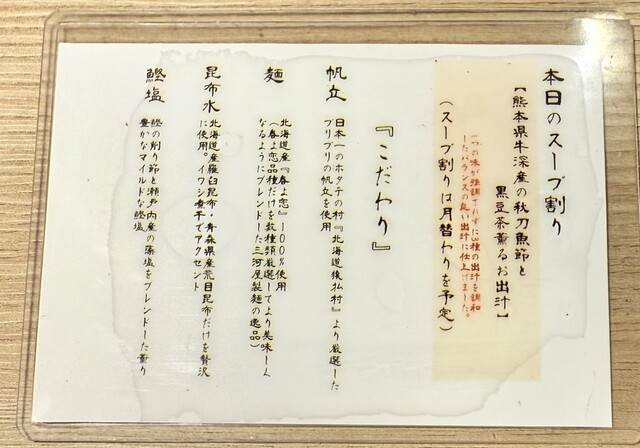 本日のスープ割り
【熊本県牛深産の秋刀魚節と
黒豆茶薫るお出汁】
一つの味が強調されずに3種の出汁を調和
したバランスの良い出汁に仕上げました。
(スープ割りは月替わりを予定)
『こだわり』
帆立
日本一のホタテの村『北海道猿払村』より厳選した
プリプリの帆立を使用
麺
北海道産『春よ恋』100%使用
(春よ恋品種だけを数種類厳選してより美味しく
なるようにブレンドした三河屋製麺の逸品)
昆布水
北海道産羅臼昆布・青森県産荒目昆布だけを贅沢
に使用。イワシ煮干でアクセント
鰹塩
鰹の削り節と瀬戸内産の藻塩をブレンドした薫り
豊かなマイルドな鰹塩